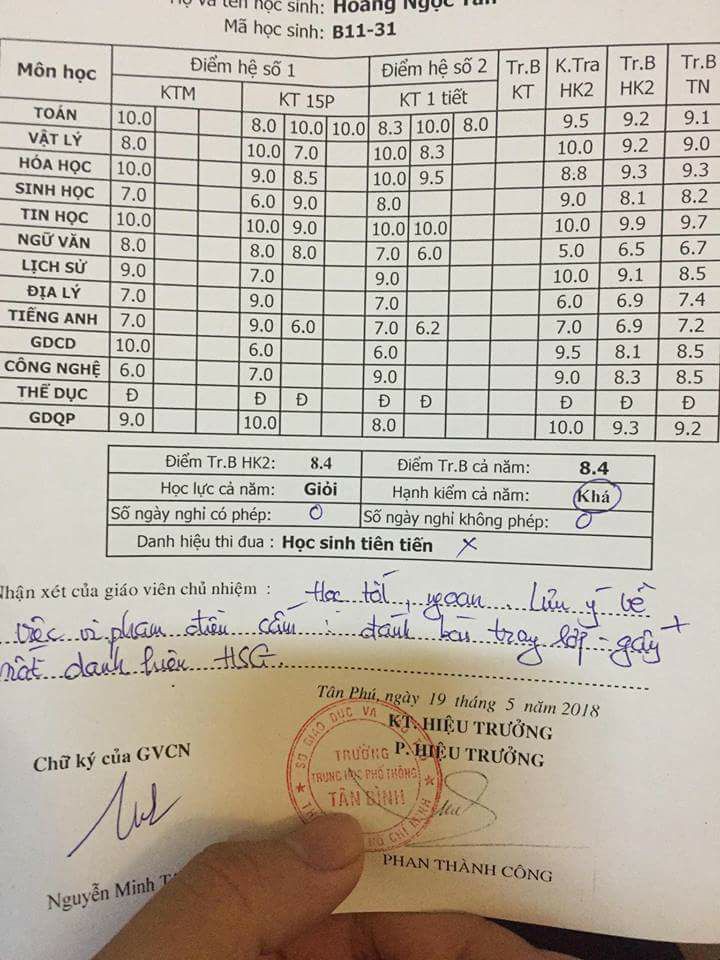 Họ và tên học sinh: Hoàng Ngọc Tân
Mã học sinh: B11-31
Môn học Điểm hệ số 1 Điểm hệ số 2 Tr.B KT K.Tra HK2 Tr.B HK2 Tr.B TN
KTM KT 15P KT 1 tiết
TOÁN 10.0 8.0 10.0 10.0 8.3 10.0 8.0 9.5 9.2 9.1
VẬT LÝ 8.0 10.0 7.0 10.0 8.3 10.0 9.2 9.0
HÓA HỌC 10.0 9.0 8.5 10.0 9.5 8.8 9.3 9.3
SINH HỌC 7.0 6.0 9.0 8.0 9.0 8.1 8.2
TIN HỌC 10.0 10.0 9.0 10.0 10.0 10.0 9.9 9.7
NGỮ VĂN 8.0 8.0 8.0 7.0 6.0 5.0 6.5 6.7
LỊCH SỬ 9.0 7.0 9.0 10.0 9.1 8.5
ĐỊA LÝ 7.0 9.0 7.0 6.0 6.9 7.4
TIẾNG ANH 7.0 9.0 6.0 7.0 6.2 7.0 6.9 7.2
GDCD 10.0 6.0 6.0 9.5 8.1 8.5
CÔNG NGHỆ 6.0 7.0 9.0 9.0 8.3 8.5
THỂ DỤC Đ Đ Đ Đ Đ Đ Đ Đ
GDQP 9.0 10.0 8.0 10.0 9.3 9.2
Điểm Tr.B HK2: 8.4 Điểm Tr.B cả năm: 8.4
Học lực cả năm: Giỏi Hạnh kiểm cả năm: Khá
Số ngày nghỉ có phép: 0 Số ngày nghỉ không phép: 0
Danh hiệu thi đua : Học sinh tiên tiến x
Nhận xét của giáo viên chủ nhiệm : Học tốt, ngoan. Lưu ý về
việc vi phạm điều cấm : đánh bài trong lớp - gây
mất danh hiệu HSG.
Tân Phú, ngày 19 tháng 5 năm 2018
KT. HIỆU TRƯỞNG
P. HIỆU TRƯỞNG
Chữ ký của GVCN
SỞ GIÁO DỤC VÀ
TRƯỜNG
TRUNG HỌC PHỔ THÔNG
TÂN BÌNH
HỒ CHÍ MINH
PHAN THÀNH CÔNG
Nguyễn Minh